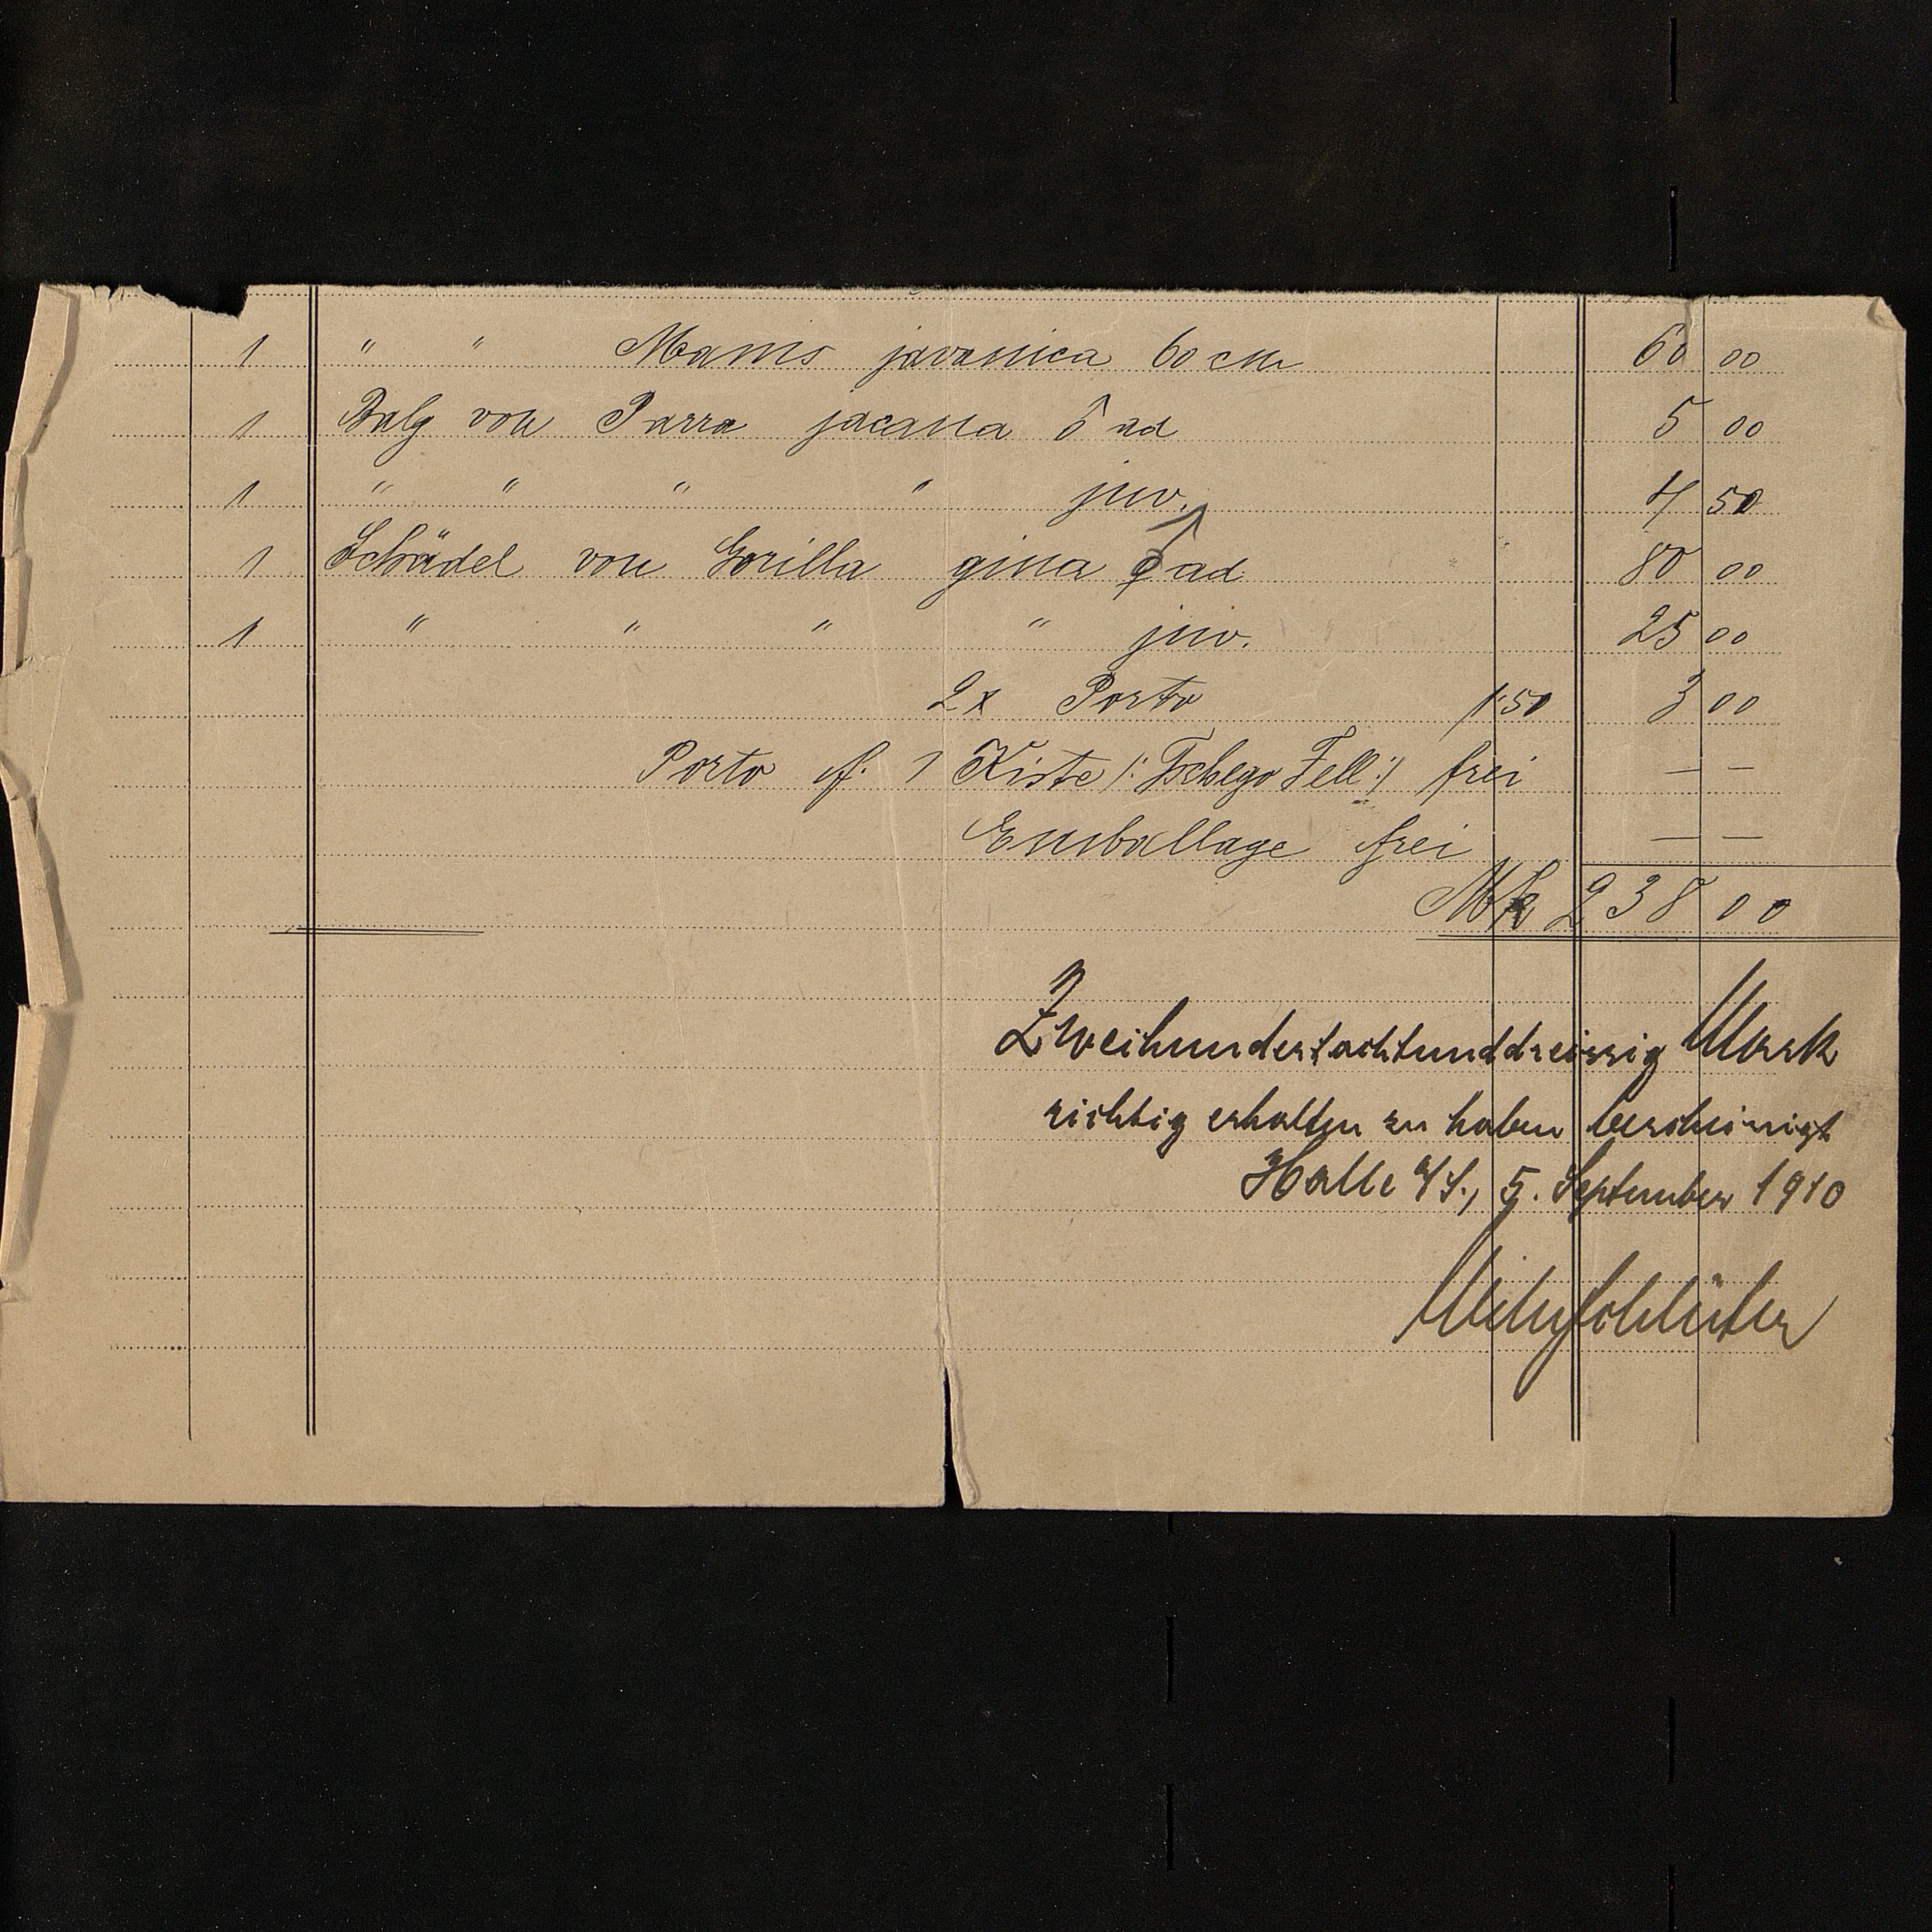 1 " " Manis javanica 60 cm 60 00
1 Balg von Parra jacana ♂ ad 5 00
1 " " " " juv. 4 50
1 Schädel von Gorilla gina ad 80 00
1 " " " " juv. 25 00
2 x Porto 1.50 3 00
Porto f. 1 Kiste /: Tschego Fell :/ frei — —
Emballage frei — —
Mk 238 00
Zweihundertachtunddreissig Mark
richtig erhalten zu haben bescheinigt
Halle a/S., 5. September 1910
Wilh Schlüter